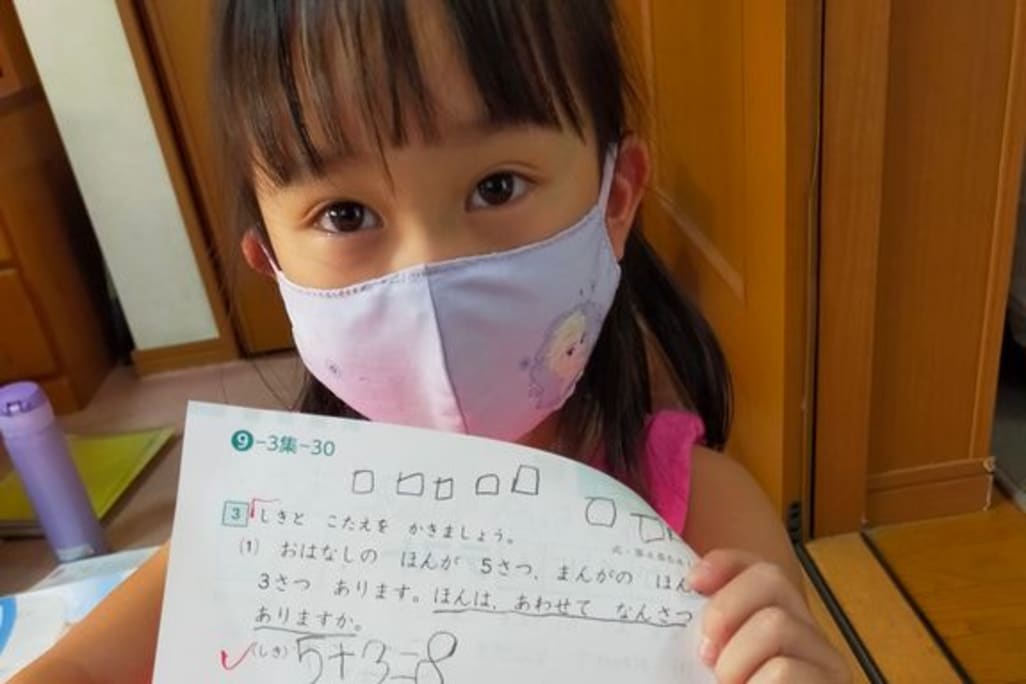 9-3集-30
3 しきと こたえを かきましょう。
(1) おはなしの ほんが 5さつ、まんがの ほん
3さつ あります。ほんは、あわせて なんさつ
ありますか。
(しき) 5+3=8